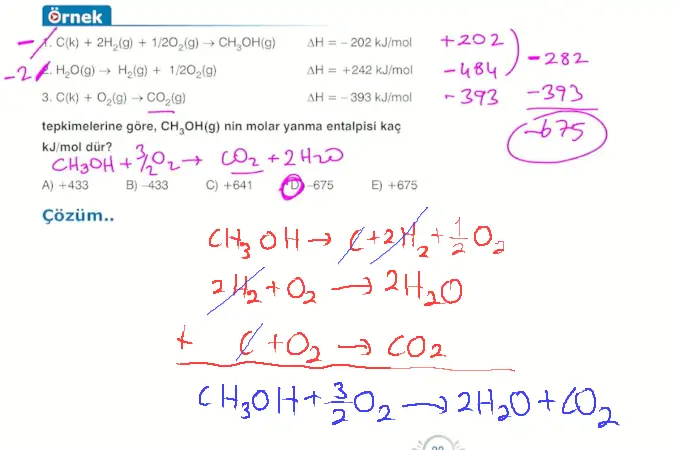 Örnek
1. C(k) + 2H₂(g) + 1/2O₂(g) → CH₃OH(g) ΔH = – 202 kJ/mol +202
– 282
-2 2. H₂O(g) → H₂(g) + 1/2O₂(g) ΔH = +242 kJ/mol – 484
3. C(k) + O₂(g) → CO₂(g) ΔH = – 393 kJ/mol - 393 – 393
tepkimelerine göre, CH₃OH(g) nin molar yanma entalpisi kaç -675
kJ/mol dür?
CH₃OH + 3/2 O₂ → CO₂ + 2H₂O
A) +433 B) –433 C) +641 D) –675 E) +675
Çözüm..
CH₃OH → C + 2H₂ + 1/2 O₂
2H₂ + O₂ → 2H₂O
+ C + O₂ → CO₂
CH₃OH + 3/2 O₂ → 2H₂O + CO₂